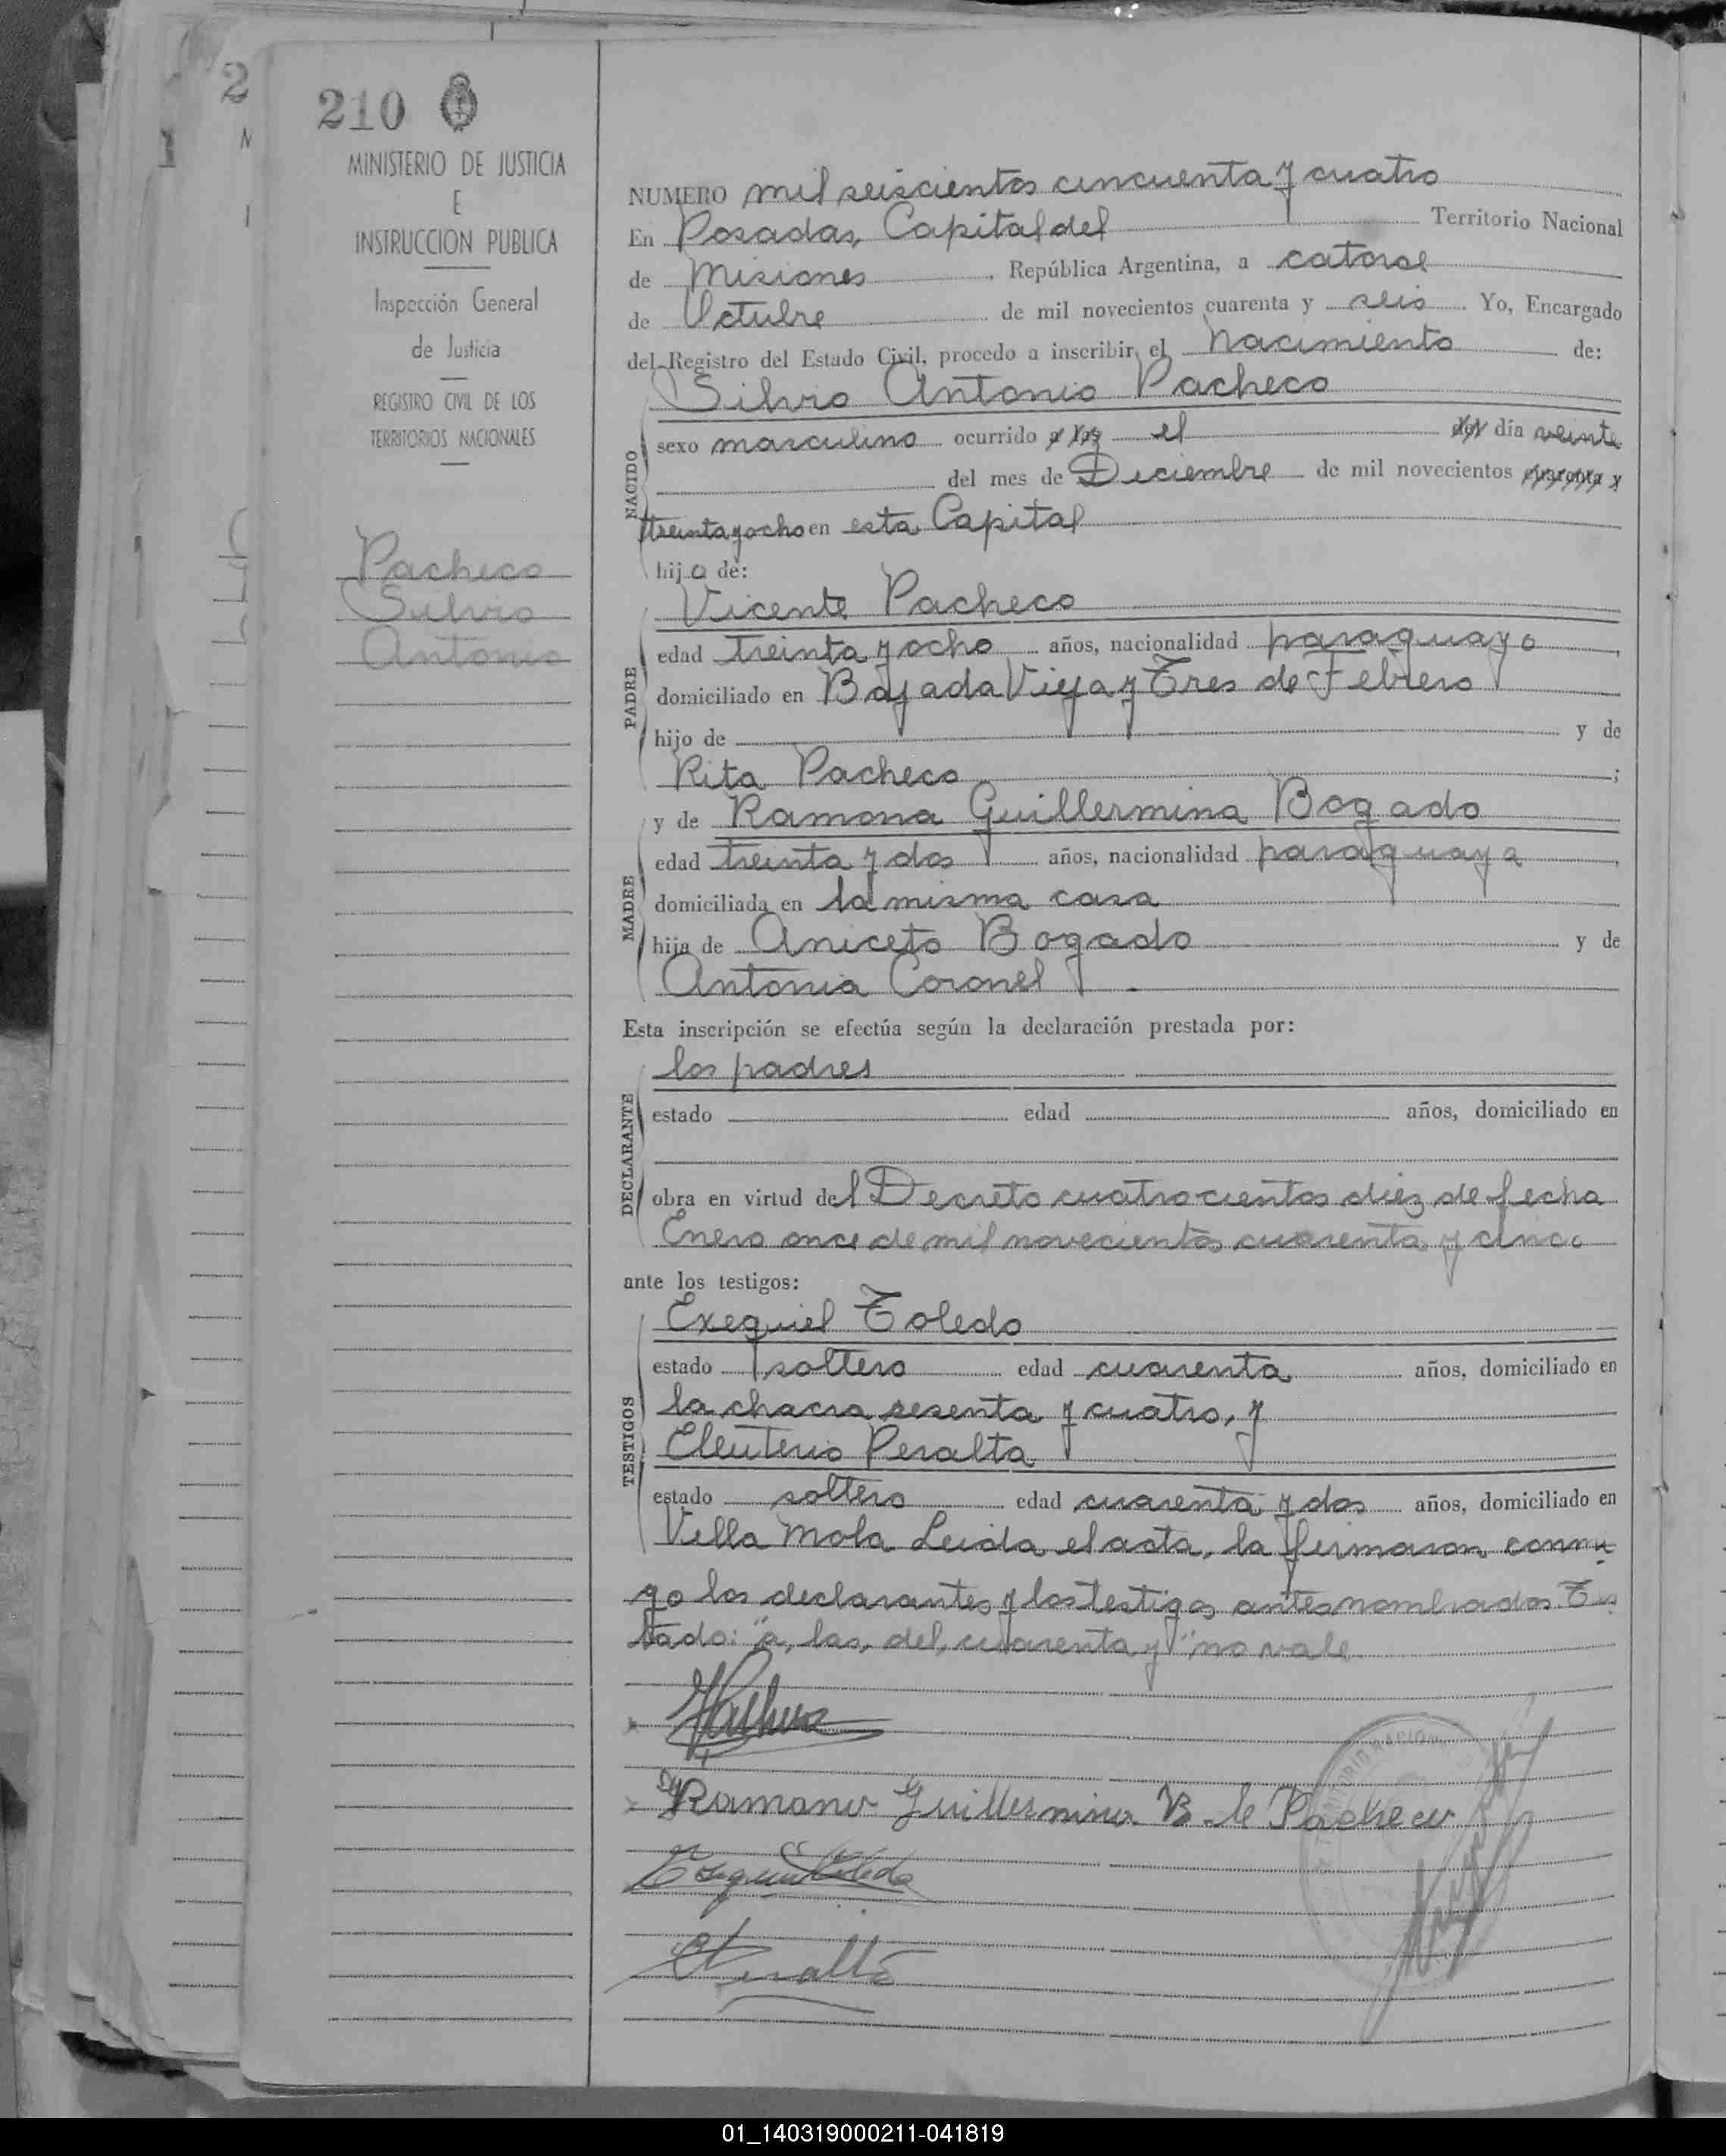 210
MINISTERIO DE JUSTICIA
E
INSTRUCCION PUBLICA
Inspección General
de Justicia
REGISTRO CIVIL DE LOS
TERRITORIOS NACIONALES
Pacheco
Silvio
Antonio
NUMERO mil seiscientos cincuenta y cuatro
En Posadas, Capital del Territorio Nacional
de Misiones, República Argentina, a catorce
de Octubre de mil novecientos cuarenta y seis. Yo, Encargado
del Registro del Estado Civil, procedo a inscribir el Nacimiento de:
Silvio Antonio Pacheco
NACIDO
sexo masculino ocurrido a las el del día veinte
del mes de Diciembre de mil novecientos cuarenta y
treinta y ocho en esta Capital
hijo de:
Vicente Pacheco
PADRE
edad treinta y ocho años, nacionalidad paraguayo,
domiciliado en Bajada Vieja y Tres de Febrero
hijo de y de
Rita Pacheco;
y de Ramona Guillermina Bogado
MADRE
edad treinta y dos años, nacionalidad paraguaya,
domiciliada en la misma casa
hija de Aniceto Bogado y de
Antonia Coronel.
Esta inscripción se efectúa según la declaración prestada por:
los padres
DECLARANTE
estado edad años, domiciliado en
obra en virtud del Decreto cuatrocientos diez de fecha
Enero once de mil novecientos cuarenta y cinco
ante los testigos:
Exequiel Toledo
TESTIGOS
estado soltero edad cuarenta años, domiciliado en
la chacra sesenta y cuatro, y
Eleuterio Peralta
estado soltero edad cuarenta y dos años, domiciliado en
Villa Mola Leida el acta, la firmaron conmi
go los declarantes y los testigos antes nombrados. Tes
tado: "a, las, del, cuarenta y" no vale
VPacheco
Ramona Guillermina B. de Pacheco
Exequiel Toledo
EPeralta
TERRITORIO NACIONAL
01_140319000211-041819